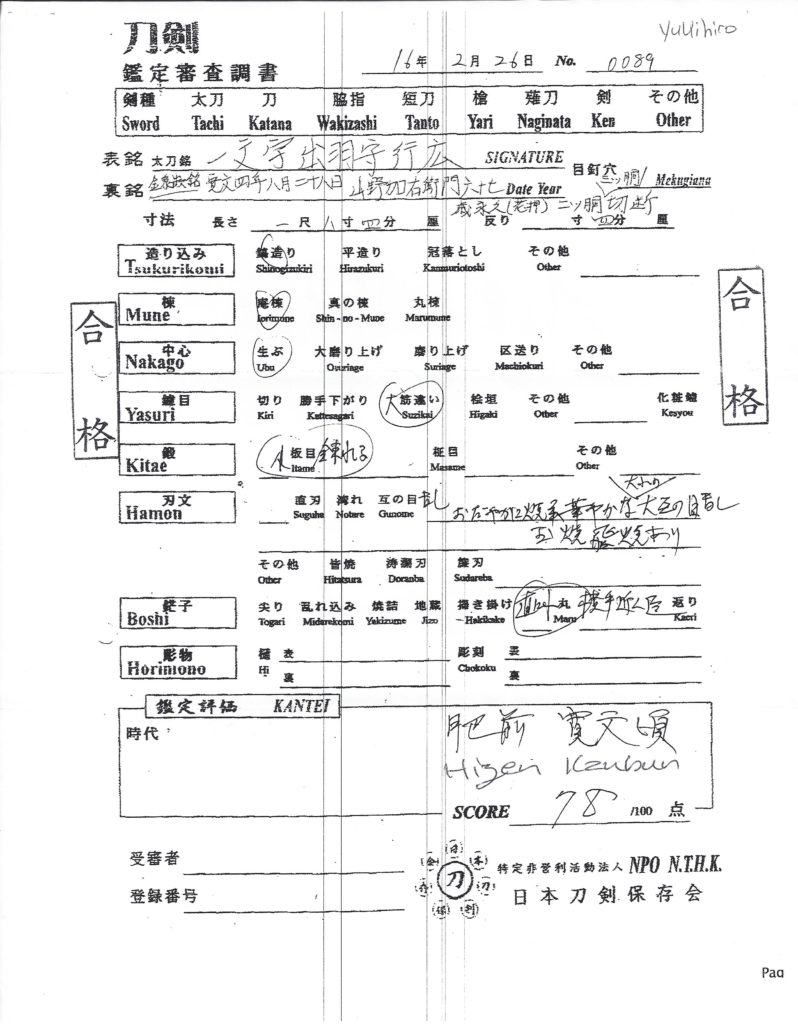 Yukihiro
刀剣
鑑定審査調書 16年 2月 26日 No. 0089
剣種 太刀 刀 脇指 短刀 槍 薙刀 剣 その他
Sword Tachi Katana Wakizashi Tanto Yari Naginata Ken Other
表銘 太刀銘 一文字出羽守行広 SIGNATURE 目釘穴 Mekugiana
裏銘 金象嵌銘 寛文四年八月二十八日 山野加右衛門六十七 Date Year 二ッ胴
歳永久(花押) 二ッ胴切断
寸法 長さ 一尺八寸四分 厘 反り 寸四分 厘
造り込み 鎬造り 平造り 冠落とし その他
Tsukurikomi Shinogizukiri Hirazukuri Kanmuriotoshi Other
棟 庵棟 真の棟 丸棟
Mune Iorimune Shin-no-Mune Marumune
中心 生ぶ 大磨り上げ 磨り上げ 区送り その他
Nakago Ubu Osuriage Suriage Machiokuri Other
鑢目 切り 勝手下がり 大筋違い 桧垣 その他 化粧鑢
Yasuri Kiri Kattesagari Suzikai Higaki Other Kesyou
鍛 小板目錬れる 柾目 その他
Kitae Itame Masame Other
刃文 直刃 湾れ 互の目乱
Hamon Suguha Notare Gunome
華やかな大互の目乱し
玉焼 飛焼あり
その他 皆焼 涛瀾刃 簾刃
Other Hitatsura Doranba Sudareba
鋩子 尖り 乱れ込み 焼詰 地蔵 掃き掛け 直 丸 返り
Boshi Togari Midarekomi Yakizume Jizo Hakikake Maru Kaeri
彫物 樋 表 彫刻 表
Horimono Hi 裏 Chokoku 裏
鑑定評価 KANTEI
時代
肥前 寛文頃
Hizen Kanbun
SCORE 78 /100 点
合格
合格
受審者
登録番号
刀
特定非営利活動法人 NPO N.T.H.K.
日本刀剣保存会
Pag